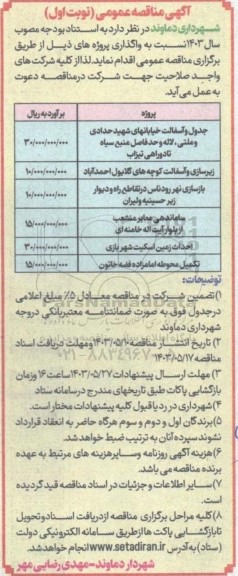 آگهی مناقصه عمومی (نوبت اول)
شهرداری دماوند در نظر دارد به استناد بودجه مصوب
سال ۱۴۰۳ نسبت به واگذاری پروژه های ذیل از طریق
برگزاری مناقصه عمومی اقدام نماید. لذا از کلیه شرکت های
واجد صلاحیت جهت شرکت در مناقصه دعوت
به عمل می آید.
پروژه
برآورد به ریال
جدول و آسفالت خیابانهای شهید حدادی
و ملتی، لاله و حد فاصل منبع سیاه
تا دوراهی تیزاب
۳۰/۰۰۰/۰۰۰/۰۰۰
زیرسازی و آسفالت کوچه های گلابول احمدآباد
۱۰/۰۰۰/۰۰۰/۰۰۰
بازسازی نهر رودناس در تقاطع راه و دیوار
زیر حسینیه ولیران
۱۰/۰۰۰/۰۰۰/۰۰۰
ساماندهی معابر منشعب
از بلوار آیت اله خامنه ای
۱۵/۰۰۰/۰۰۰/۰۰۰
احداث زمین اسکیت شهربازی
۳۰/۰۰۰/۰۰۰/۰۰۰
تکمیل محوطه امامزاده فضه خاتون
۱۵/۰۰۰/۰۰۰/۰۰۰
توضیحات:
۱) تضمین شرکت در مناقصه معادل ۵٪ مبلغ اعلامی
در جدول فوق به صورت ضمانتنامه معتبر بانکی در وجه
شهرداری دماوند
۲) تاریخ انتشار مناقصه ۱۴۰۳/۰۵/۱۰ و مهلت دریافت اسناد
مناقصه ۱۴۰۳/۰۵/۱۷
۳) مهلت ارسال پیشنهادات ۱۴۰۳/۰۵/۲۷ ساعت ۱۶ و زمان
بازگشایی پاکات طبق تاریخهای مندرج در سامانه ستاد
۴) شهرداری در رد یا قبول کلیه پیشنهادات مختار است.
۵) برندگان اول و دوم و سوم هرگاه حاضر به انعقاد قرارداد
نشوند سپرده آنان به ترتیب ضبط خواهد شد.
۶) هزینه آگهی روزنامه و سایر هزینه های مترتبه به عهده
برنده مناقصه می باشد.
۷) سایر اطلاعات و جزئیات در اسناد مناقصه قید گردیده
است.
۸) کلیه مراحل برگزاری مناقصه از دریافت اسناد و تحویل
تا بازگشایی پاکت ها از طریق سامانه الکترونیکی دولت
(ستاد) به آدرس www.setadiran.ir انجام خواهد شد.
شهردار دماوند - مهدی رضایی مهر